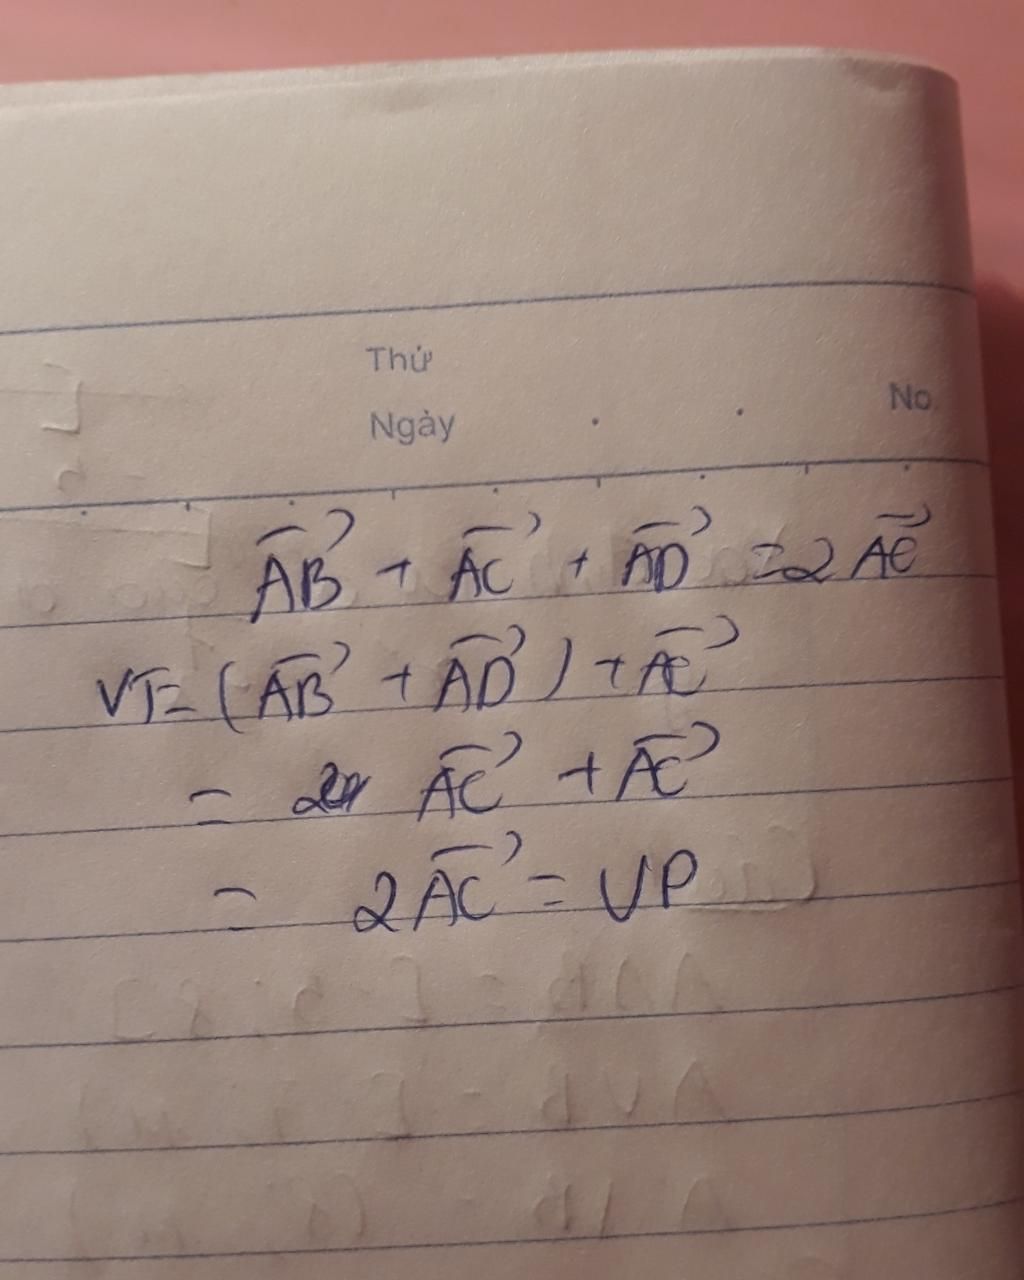 Thứ
Ngày
No.
AB⃗ + AC⃗ + AD⃗ = 2 AC⃗
VT = (AB⃗ + AD⃗) + AC⃗
= AC⃗ + AC⃗
= 2AC⃗ = VP